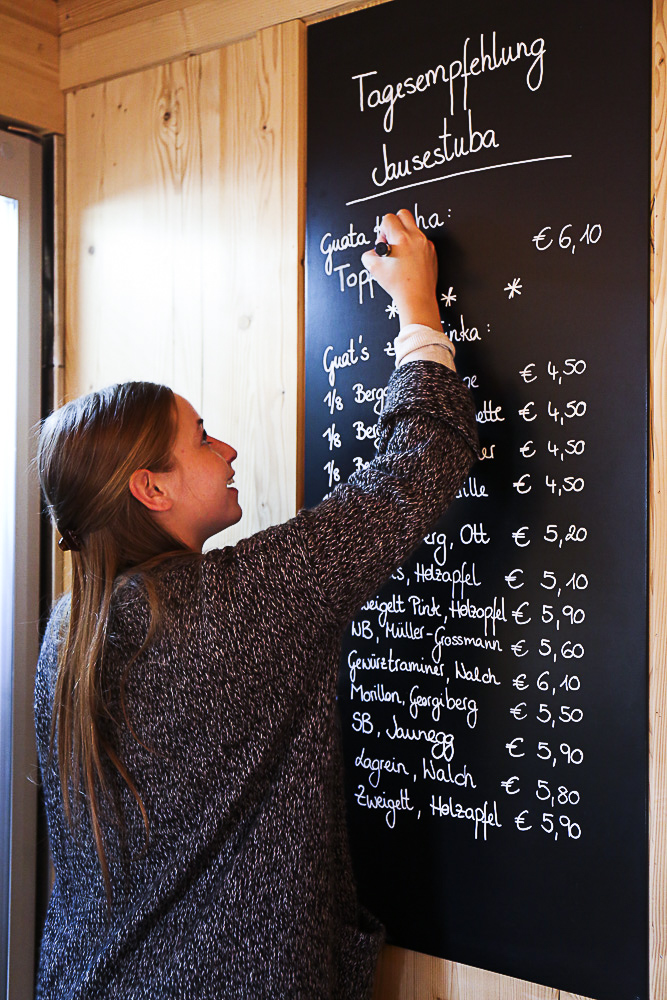 Tagesempfehlung
Jausestuba
Guata :
€ 6,10
* * *
Guat's :
1/8 € 4,50
1/8 € 4,50
1/8 € 4,50
1/8 € 4,50
Ott € 5,20
Holzapfel € 5,10
Zweigelt Pink, Holzapfel € 5,90
WB, Müller-Grossmann € 5,60
Gewürztraminer, Walch € 6,10
Morillon, Georgiberg € 5,50
SB, Jaunegg € 5,90
Lagrein, Walch € 5,80
Zweigelt, Holzapfel € 5,90